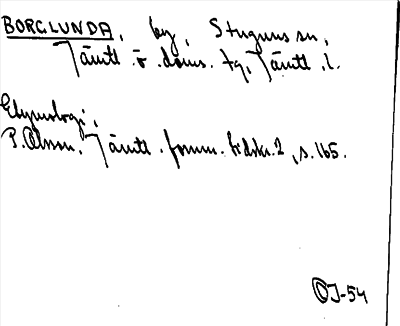 BORGLUNDA, by, Stuguns sn,
Jämtl. ö. doms. tg, Jämtl. l.
Etymologi:
P. Olsson, Jämtl. fornm. tidskr. 2, s. 165.
OJ-54